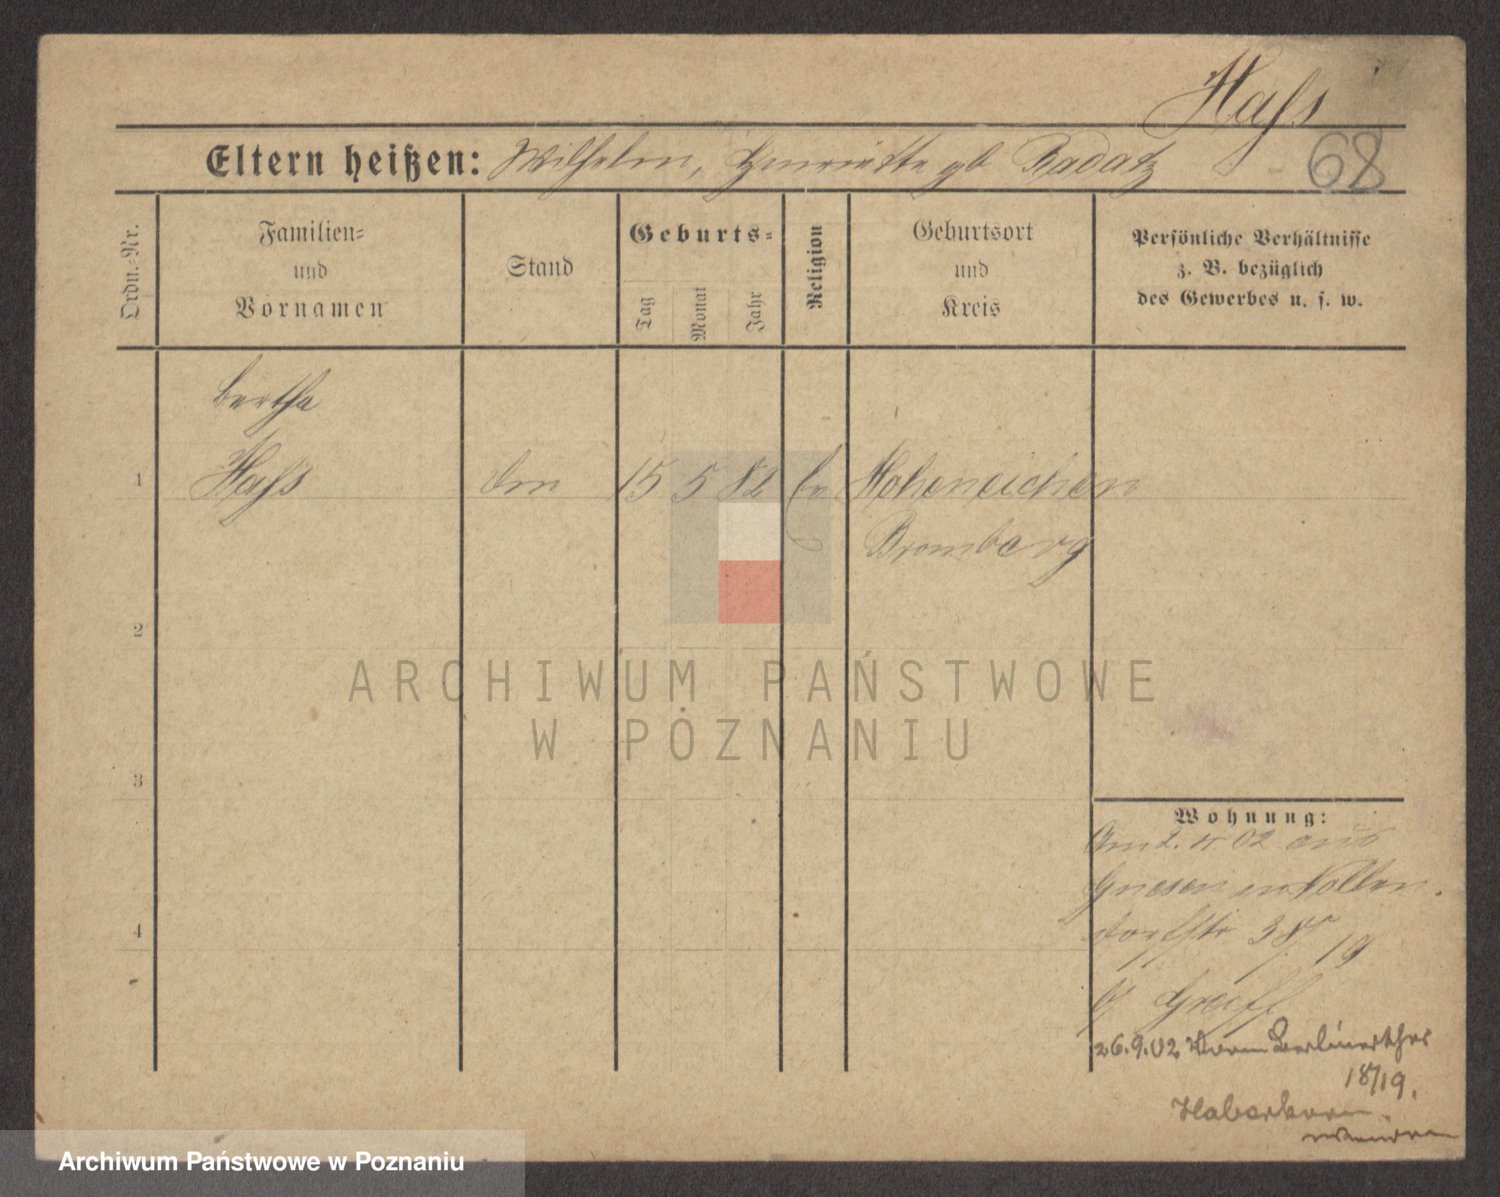 Haß
Eltern heißen: Wilhelm, Henriette gb Radatz
68
Ordn.-Nr.
Familien-
und
Vornamen
Stand
Geburts-
Tag
Monat
Jahr
Religion
Geburtsort
und
Kreis
Persönliche Verhältnisse
z. B. bezüglich
des Gewerbes u. s. w.
Bertha
1 Haß 15 5 82 ev Hoheneichen
Bromberg
2
3
4
Wohnung:
Am 2. 02 aus
Gnesen Nollen
dorfstr 38/19
b/ Greiff
26.9.02 Vorm Berlinerthor
18/19.
Haberkorn
ARCHIWUM PAŃSTWOWE
W POZNANIU
Archiwum Państwowe w Poznaniu